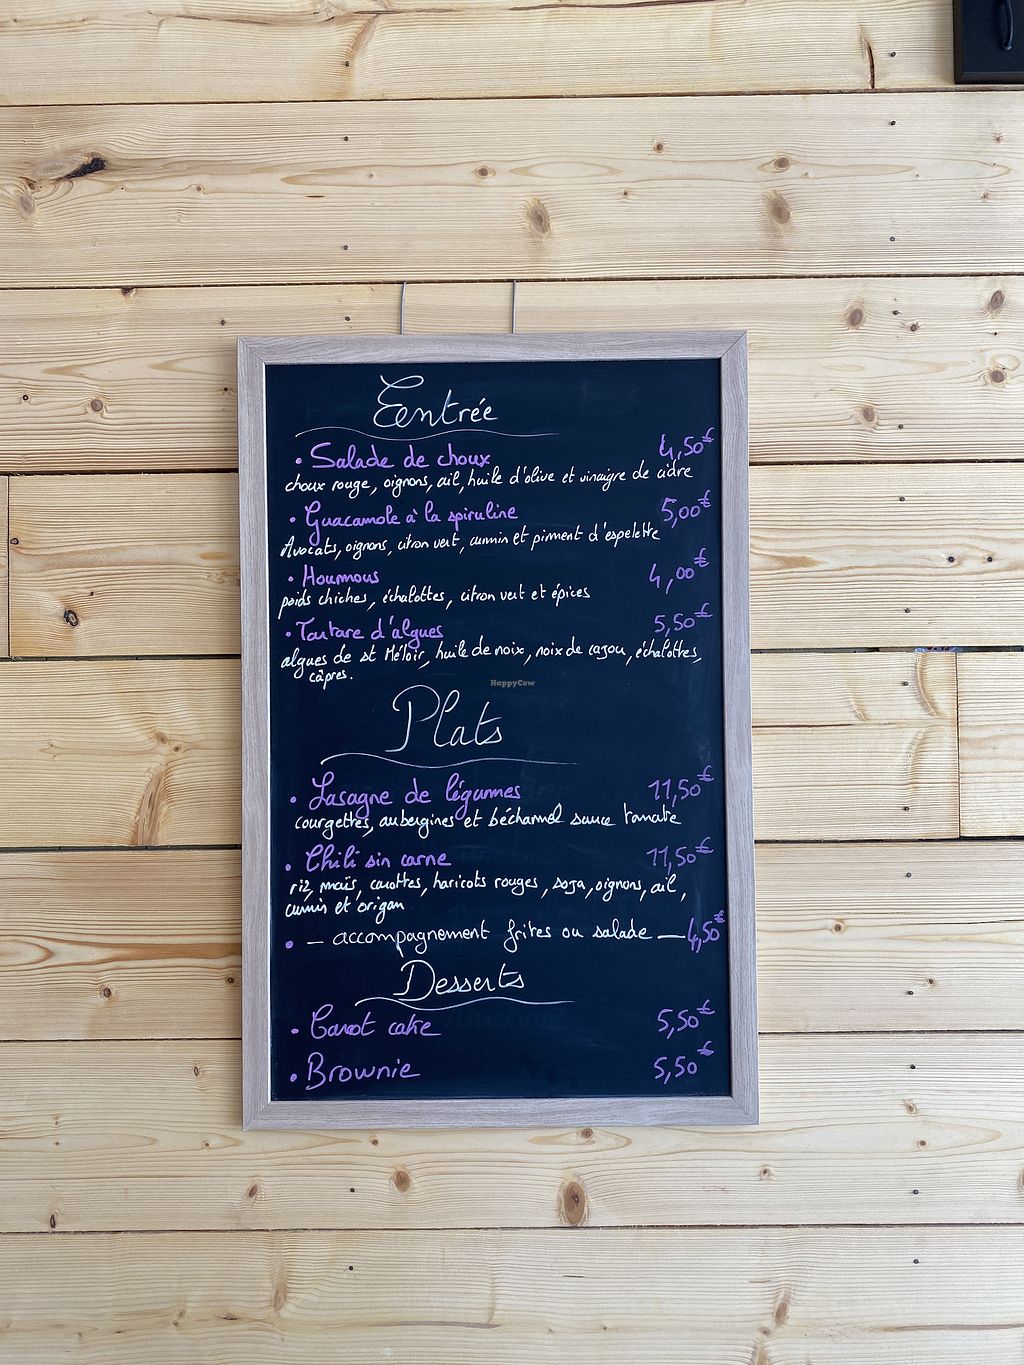 Entrée
• Salade de choux 4,50€
choux rouge, oignons, ail, huile d'olive et vinaigre de cidre
• Guacamole à la spiruline 5,00€
Avocats, oignons, citron vert, cumin et piment d'espelette
• Houmous 4,00€
poids chiches, échalottes, citron vert et épices
• Tartare d'algues 5,50€
algues de st Méloir, huile de noix, noix de cajou, échalottes,
câpres.
HappyCow
Plats
• Lasagne de légumes 11,50€
courgettes, aubergines et béchamel sauce tomate
• Chili sin carne 11,50€
riz, maïs, carottes, haricots rouges, soja, oignons, ail,
cumin et origan
• — accompagnement frites ou salade — 4,50€
Desserts
• Carrot cake 5,50€
• Brownie 5,50€